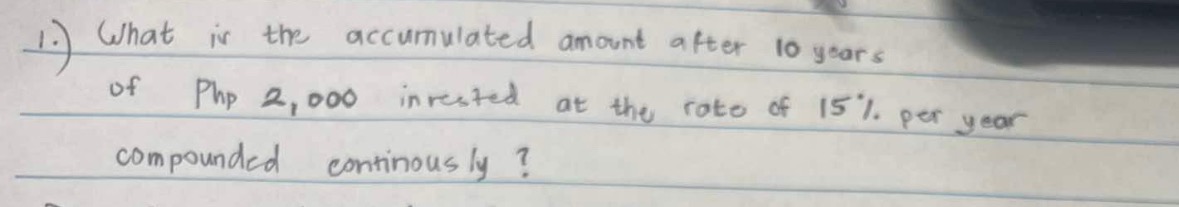 1.) What is the accumulated amount after 10 years
of Php 2,000 invested at the rate of 15% per year
compounded continously ?